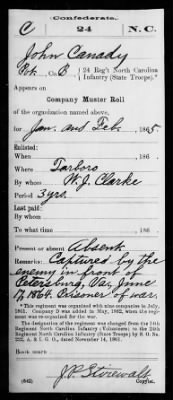 Confederate.
C 24 N.C.
John Canady
Pvt. Co. B, 24 Reg't North Carolina
Infantry (State Troops).*
Appears on
Company Muster Roll
of the organization named above,
for Jan. and Feb., 1865.
Enlisted:
When , 186 .
Where Tarboro
By whom W. J. Clarke
Period 3 yrs.
Last paid:
By whom
To what time , 186 .
Present or absent Absent
Remarks: Captured by the
enemy in front of
Petersburg, Va., June
17, 1864. Prisoner of war.
*This regiment was organized with ten companies in July,
1861. Company D was added in May, 1862, when the regi-
ment was re-organized for the war.
The designation of the regiment was changed from the 14th
Regiment North Carolina Infantry (Volunteers) to the 24th
Regiment North Carolina Infantry (State Troops) by S. O. No.
222, A. & I. G. O., dated November 14, 1861.
Book mark:
J. P. Stirewalt
(642) Copyist.